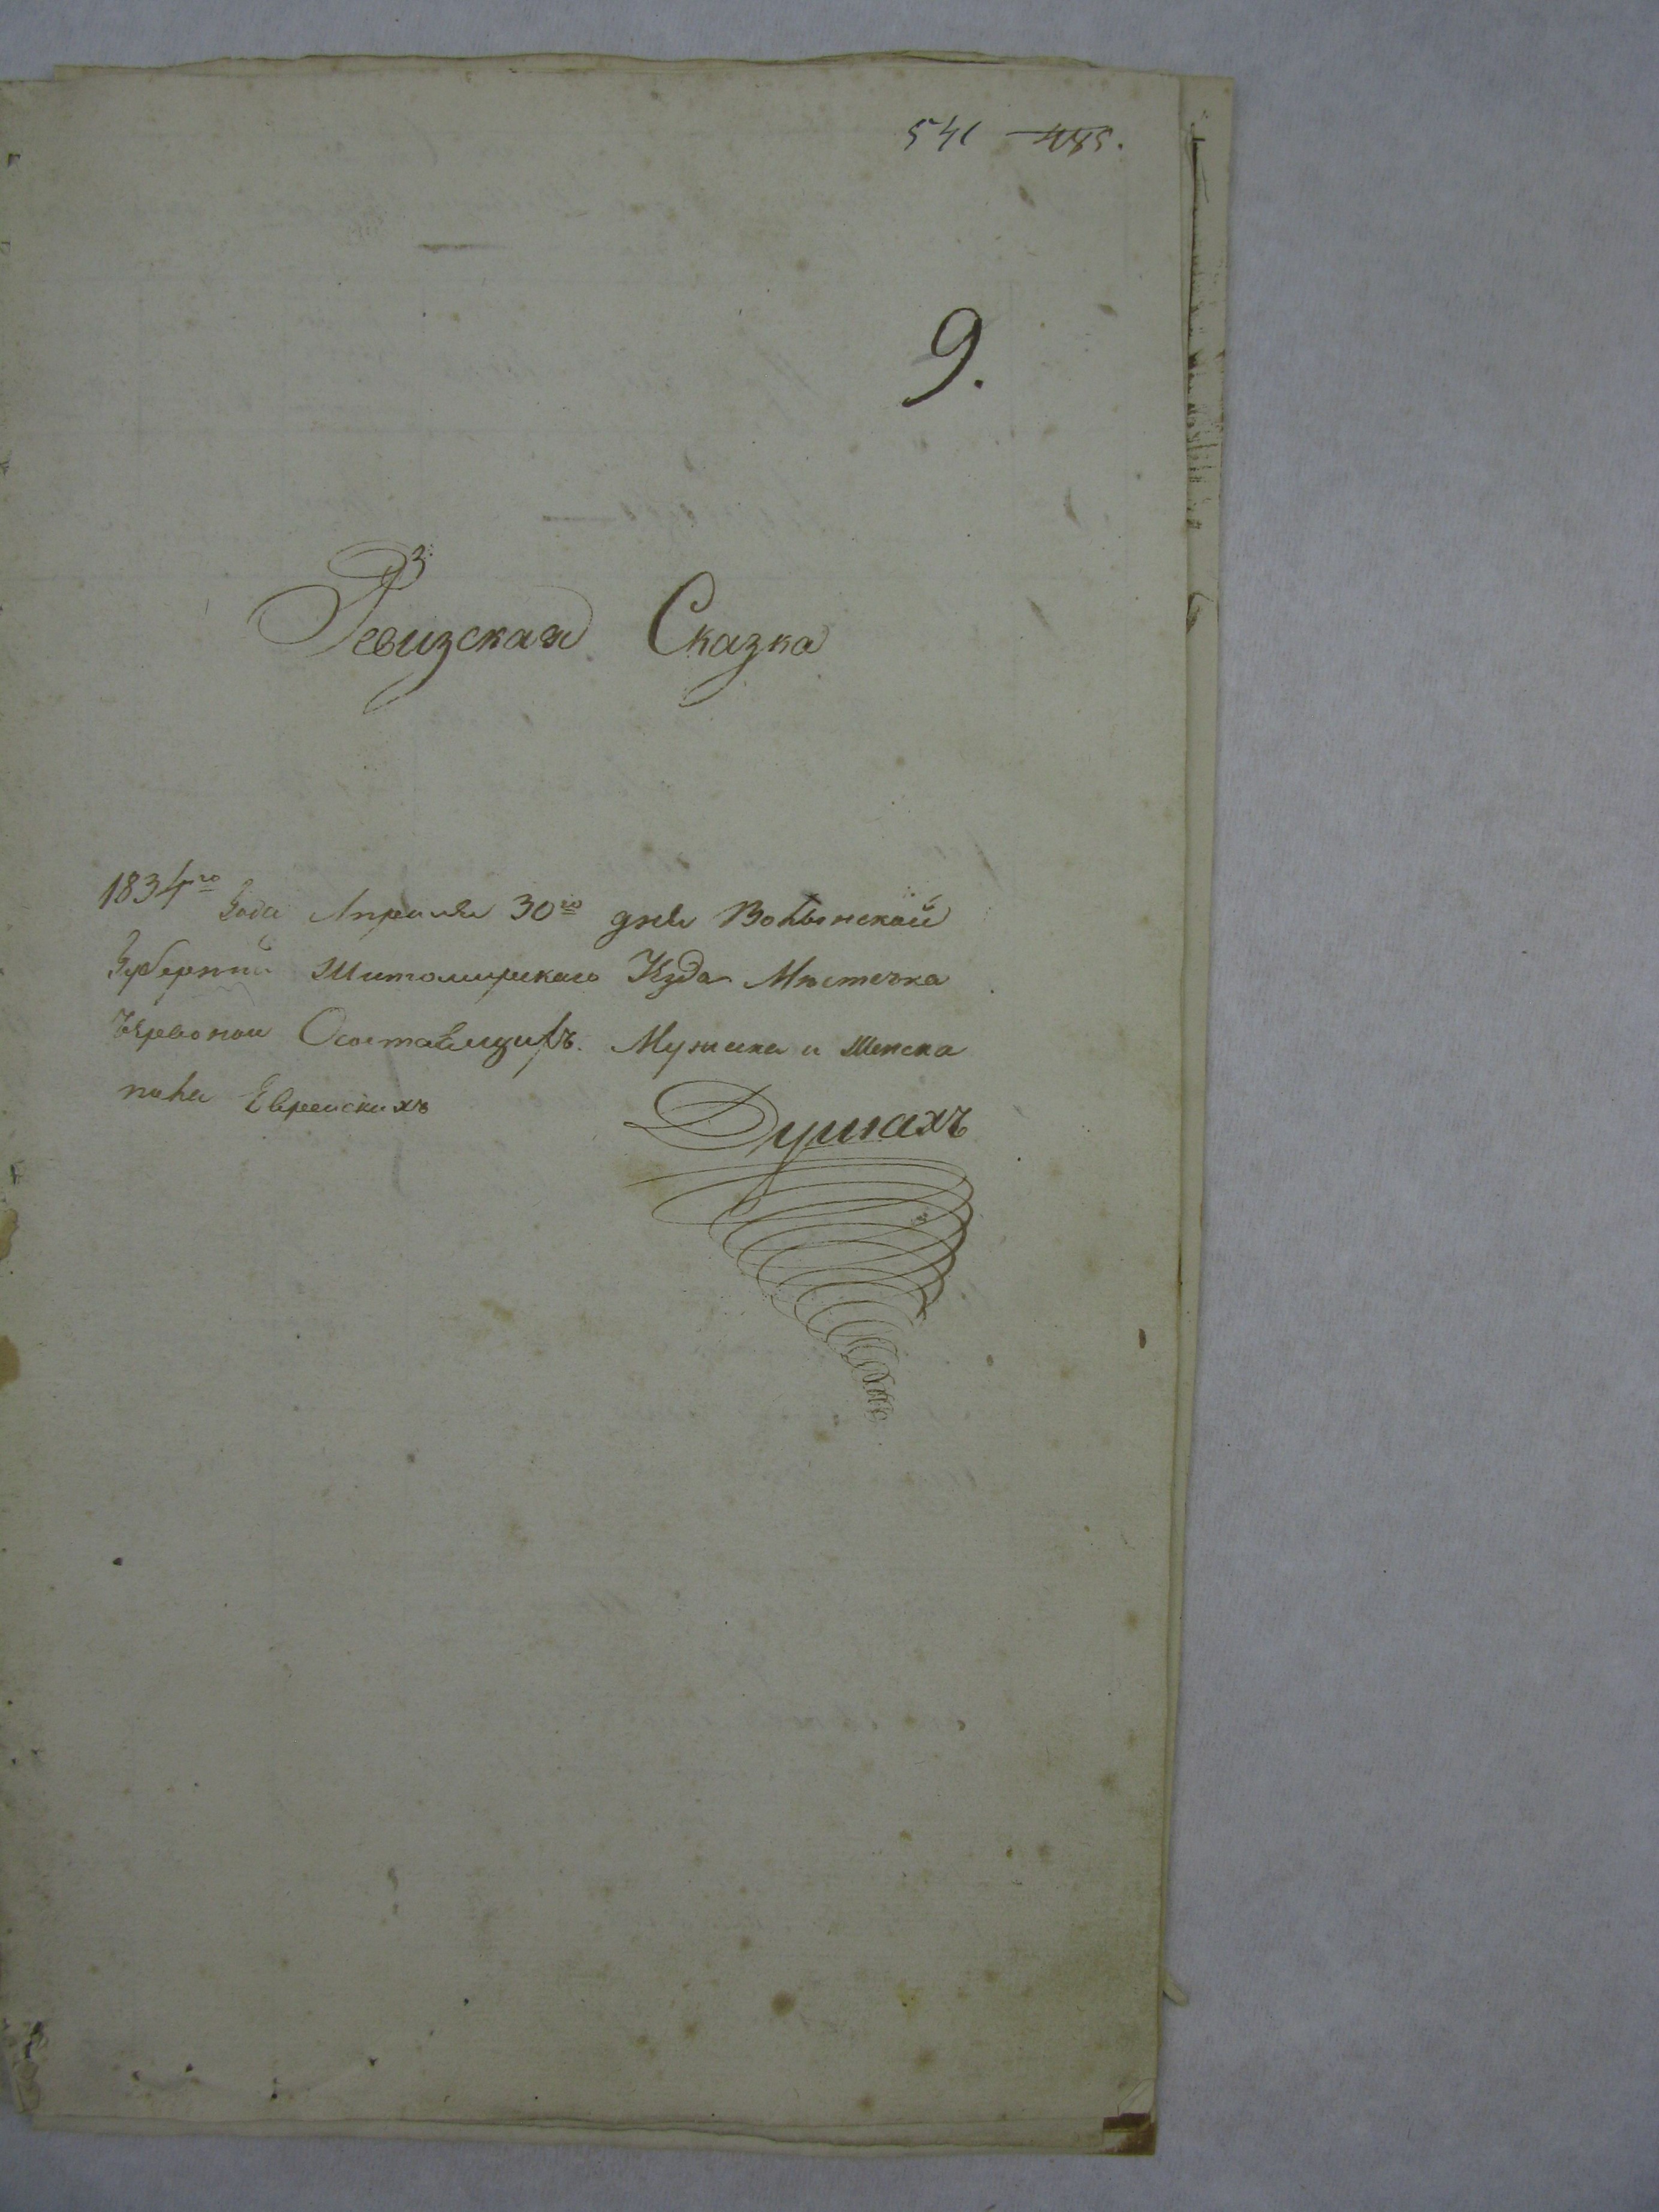 541 485.
9.
Ревизская Сказка
1834го Года Апреля 30го дня Волынской
Губернии Житомирскаго уезда Местечка
Червонои Мужска и Женска
пола Евреискихъ
Душахъ